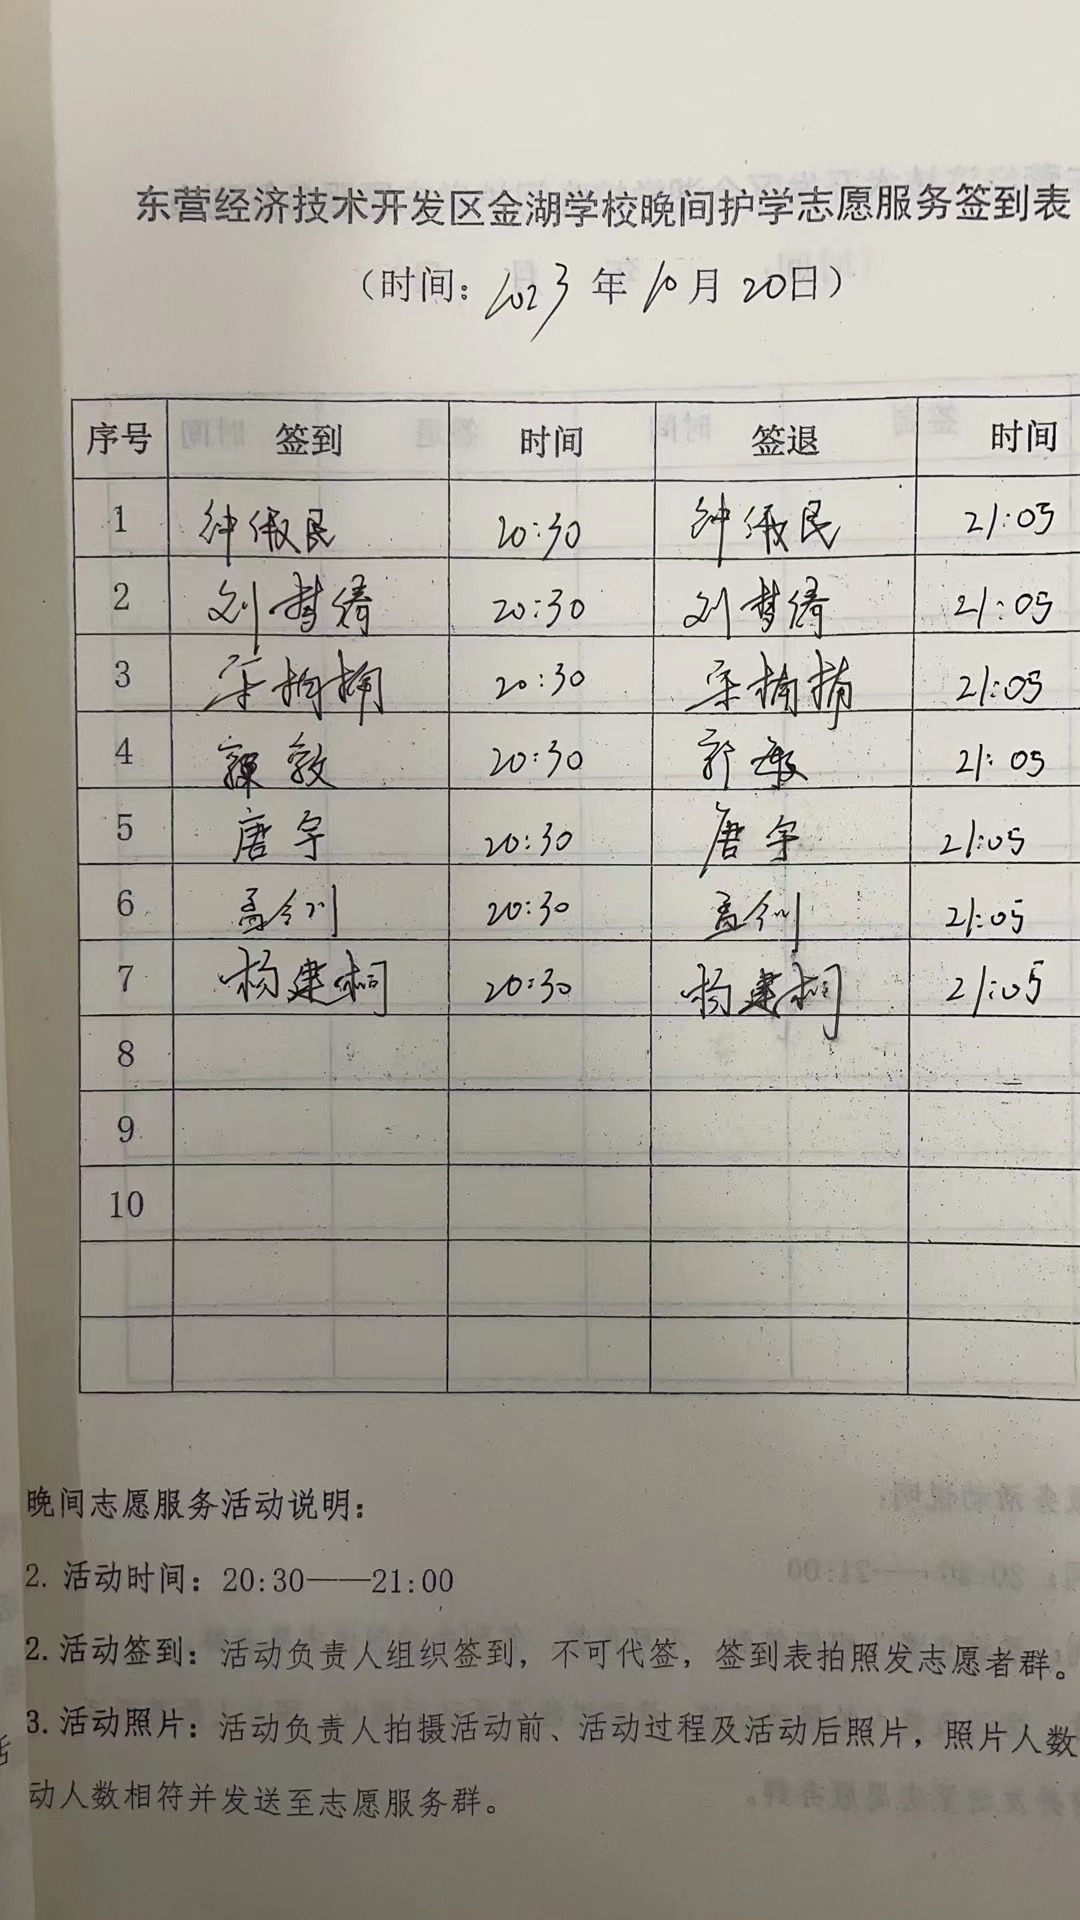 东营经济技术开发区金湖学校晚间护学志愿服务签到表
（时间：2023 年 10 月 20日）
序号 签到 时间 签退 时间
1 钟俶民 20:30 钟俶民 21:05
2 刘梦绮 20:30 刘梦绮 21:05
3 20:30 21:05
4 20:30 郭敏 21:05
5 唐宇 20:30 唐宇 21:05
6 20:30 21:05
7 杨建桐 20:30 杨建桐 21:05
8
9
10
晚间志愿服务活动说明：
2. 活动时间：20:30——21:00
2. 活动签到：活动负责人组织签到，不可代签，签到表拍照发志愿者群。
3. 活动照片：活动负责人拍摄活动前、活动过程及活动后照片，照片人数
动人数相符并发送至志愿服务群。